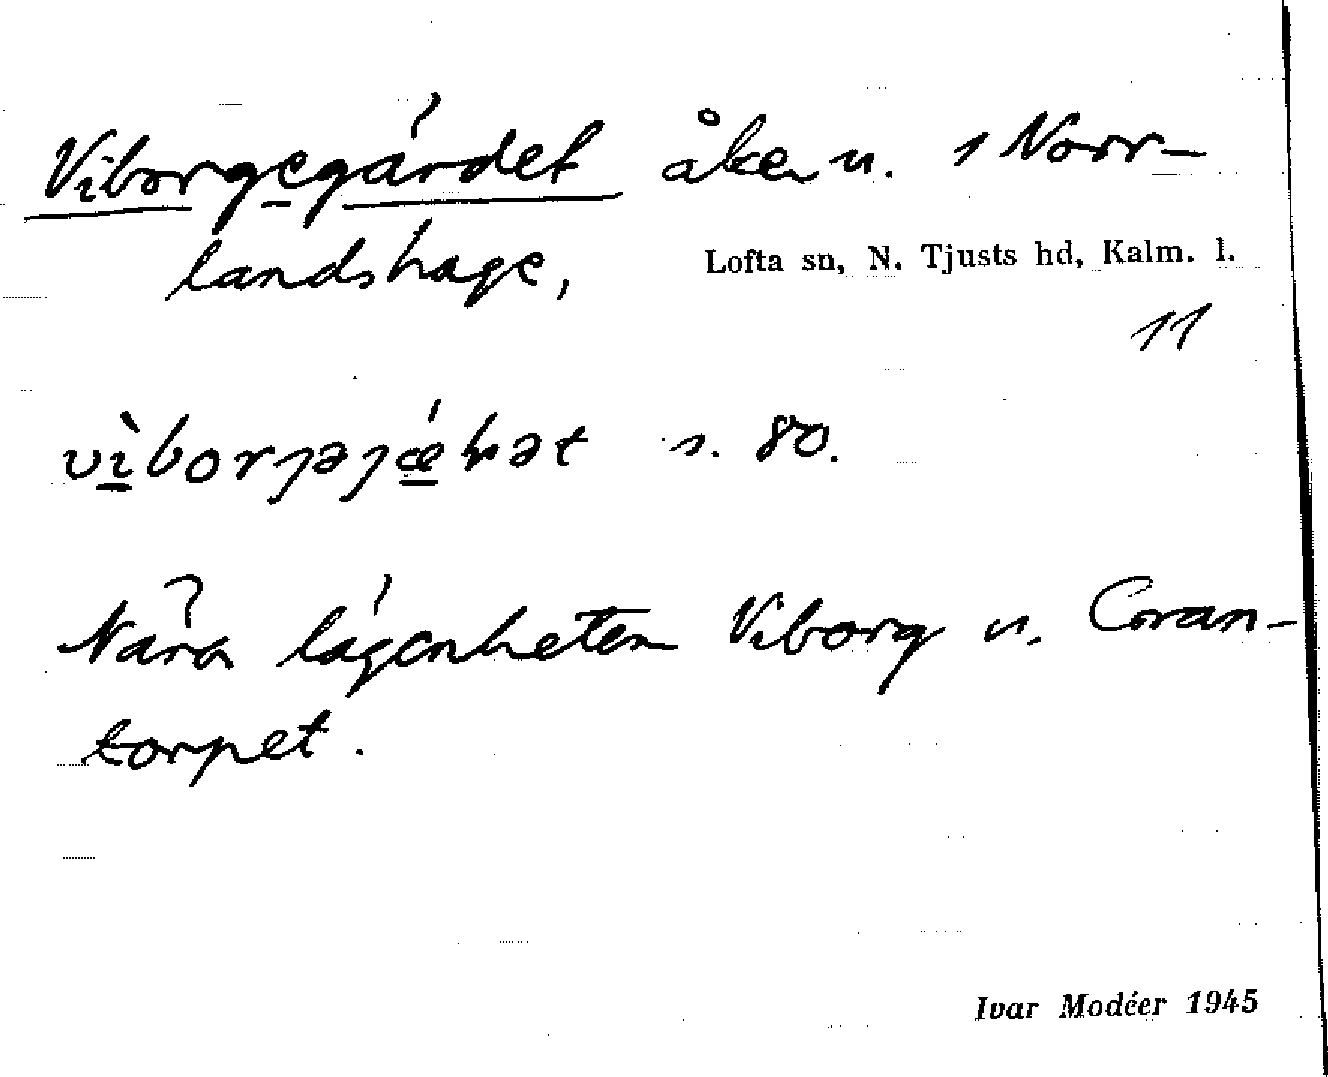 Viborgegärdet åker u. 1 Norr-
landshage,
Lofta sn, N. Tjusts hd, Kalm. l.
11
s. 80.
Nära lägenheten Viborg u. Gran-
torpet.
Ivar Modéer 1945